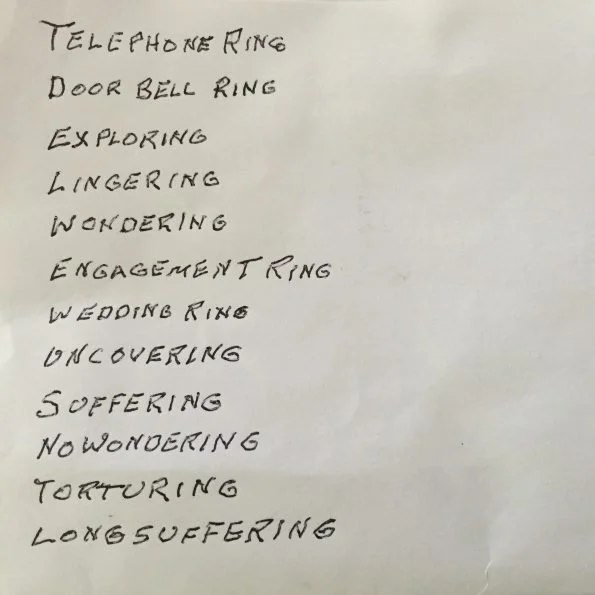 TELEPHONE RING
DOOR BELL RING
EXPLORING
LINGERING
WONDERING
ENGAGEMENT RING
WEDDING RING
UNCOVERING
SUFFERING
NOWONDERING
TORTURING
LONGSUFFERING